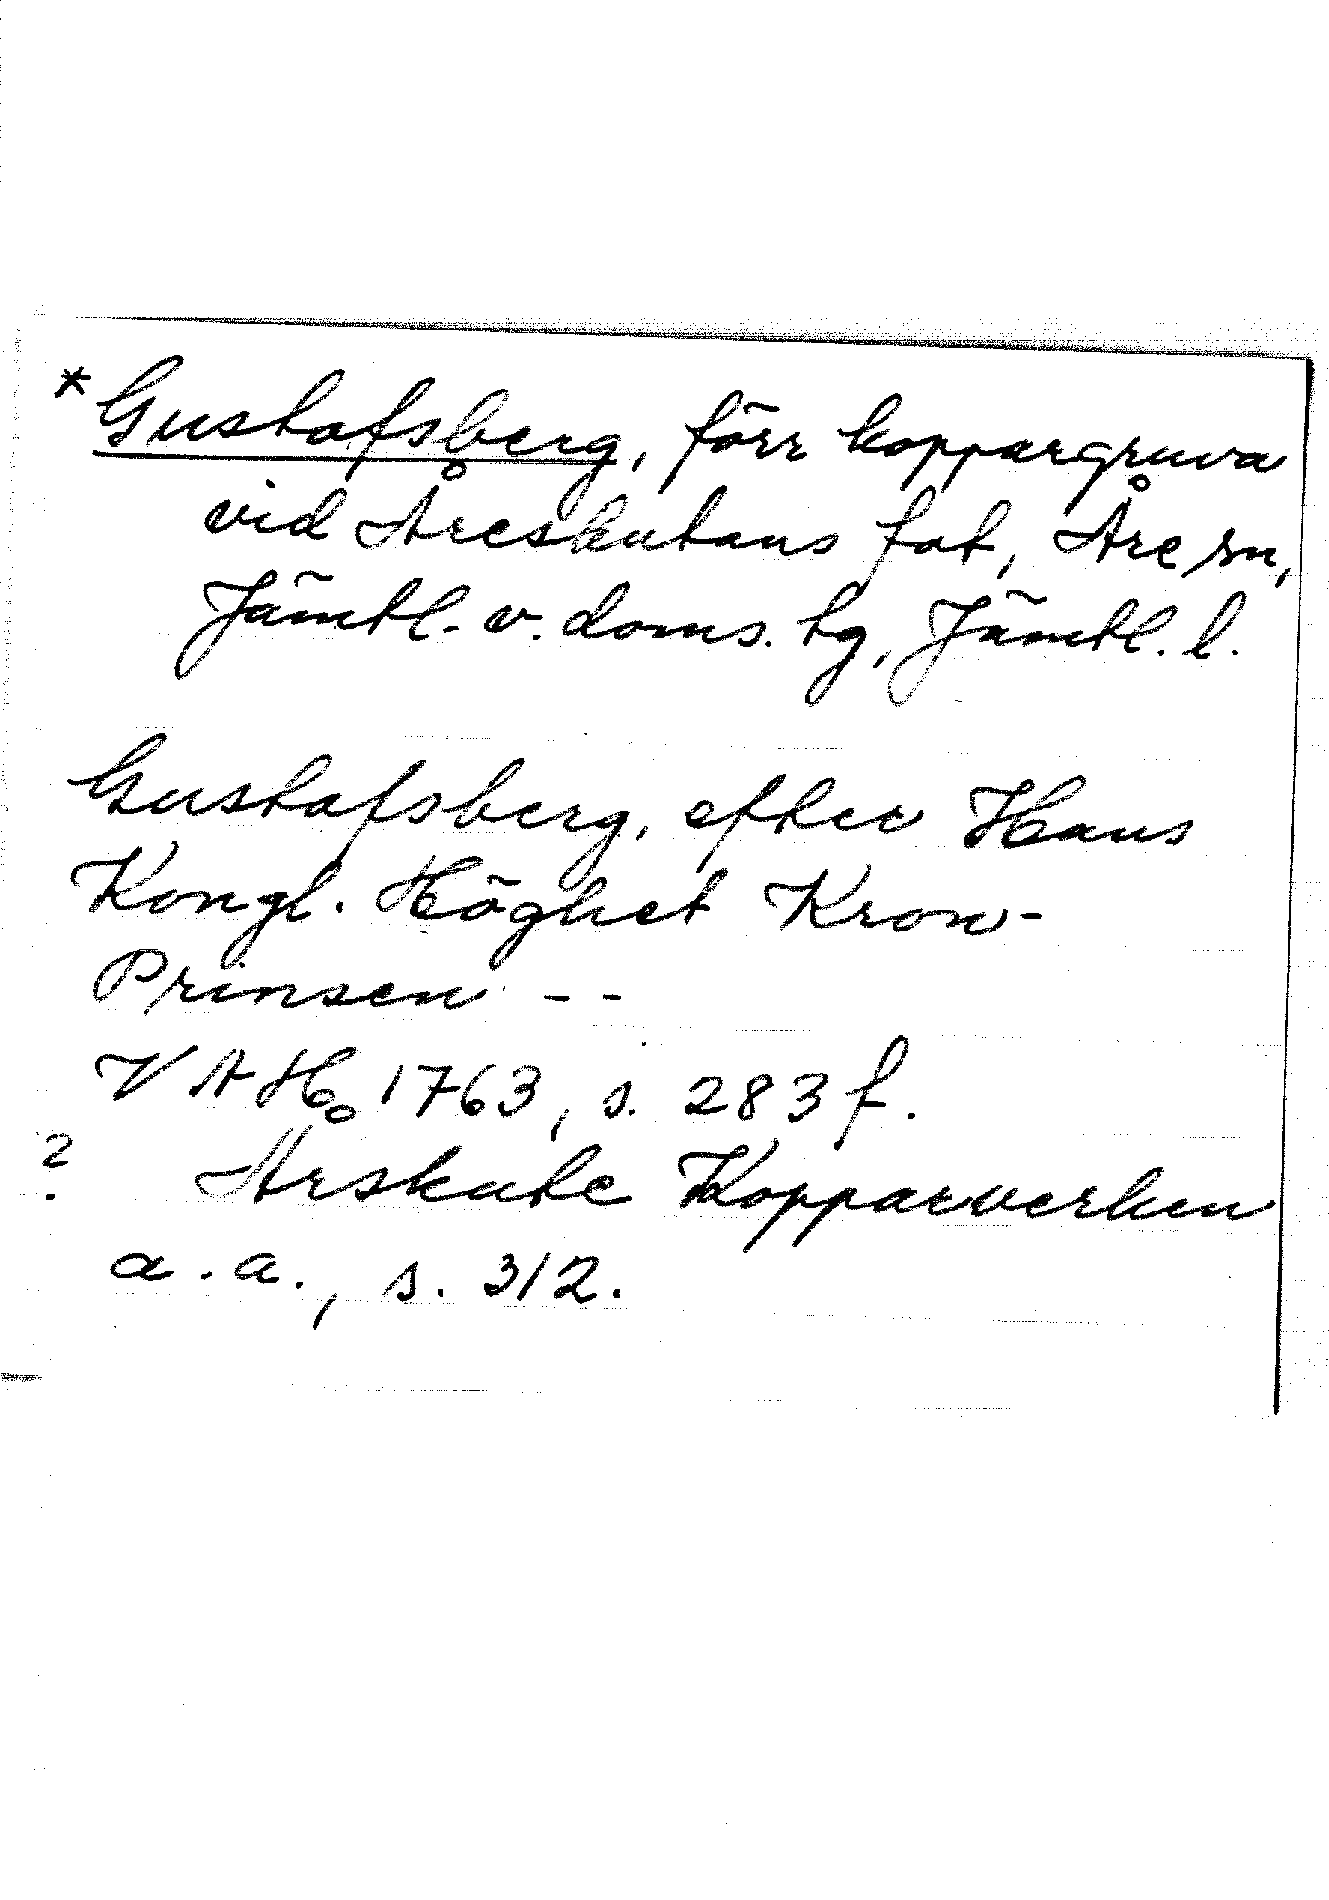 * Gustafsberg, förr koppargruva
vid Åreskutans fot, Åre sn,
Jämtl. v. doms. tg, Jämtl. l.
Gustafsberg, efter Hans
Kongl. Höghet Kron-
Prinsen - -
VAH 1763, s. 283 f.
? Årskute Kopparverken
a. a., s. 312.